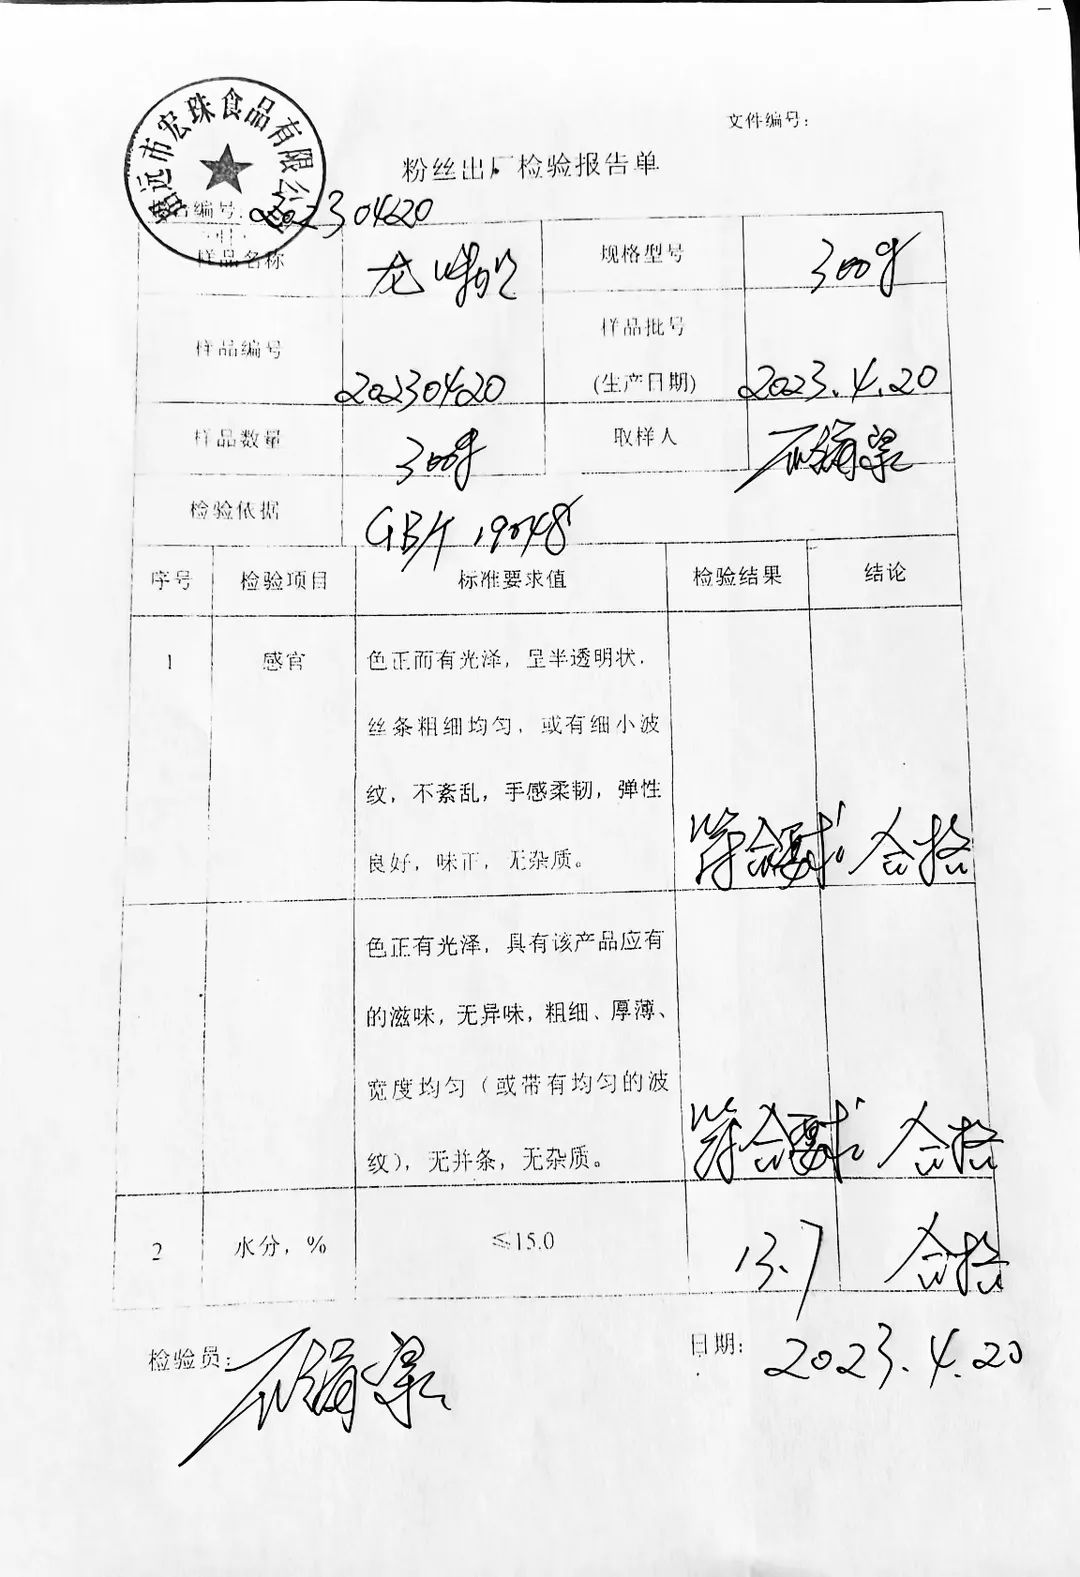 文件编号：
招远市宏珠食品有限公司
粉丝出厂检验报告单
告编号: 20230420
样品名称 规格型号 300g
样品编号 20230420 样品批号
(生产日期) 2023.4.20
样品数量 300g 取样人
检验依据 GB/T 19048
序号 检验项目 标准要求值 检验结果 结论
1 感官 色正而有光泽，呈半透明状，
丝条粗细均匀，或有细小波
纹，不紊乱，手感柔韧，弹性
良好，味正，无杂质。 符合要求 合格
色正有光泽，具有该产品应有
的滋味，无异味，粗细、厚薄、
宽度均匀（或带有均匀的波
纹），无并条，无杂质。 符合要求 合格
2 水分，% ≤15.0 13.7 合格
检验员： 日期： 2023.4.20